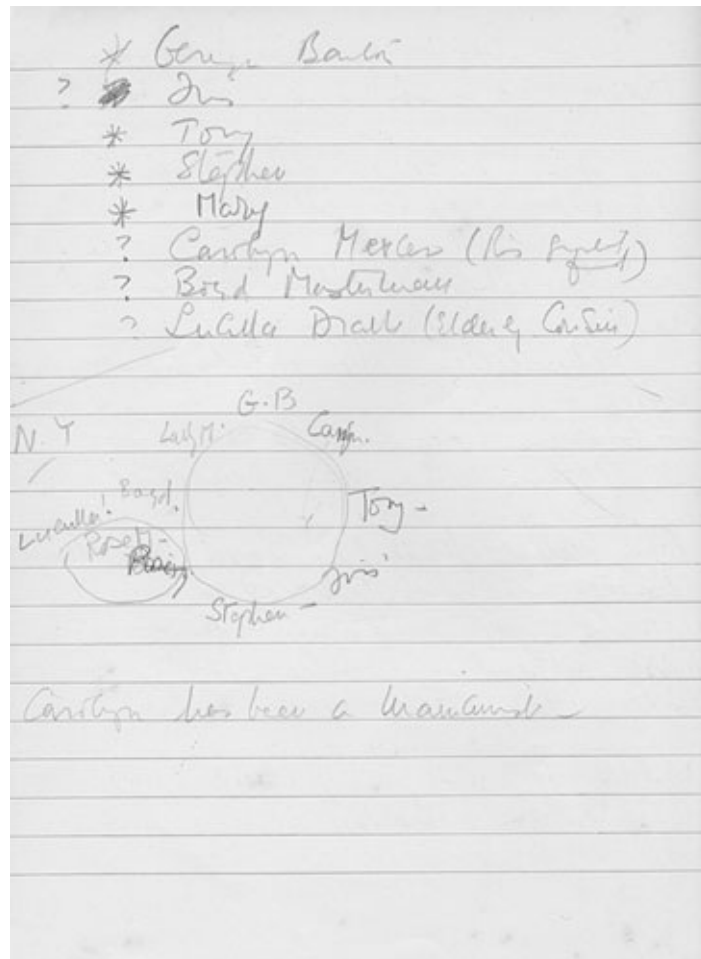 * George Barton
? Iris
* Tony
* Stephen
* Mary
? Carolyn Mercer (His
? Boyd
? Lucilla Drake (Elderly Cousin)
G.B
N.Y Lady M. Carolyn.
Boyd. Tony -
Lucilla!
Rose M -
Iris
Stephen -
Carolyn has been a